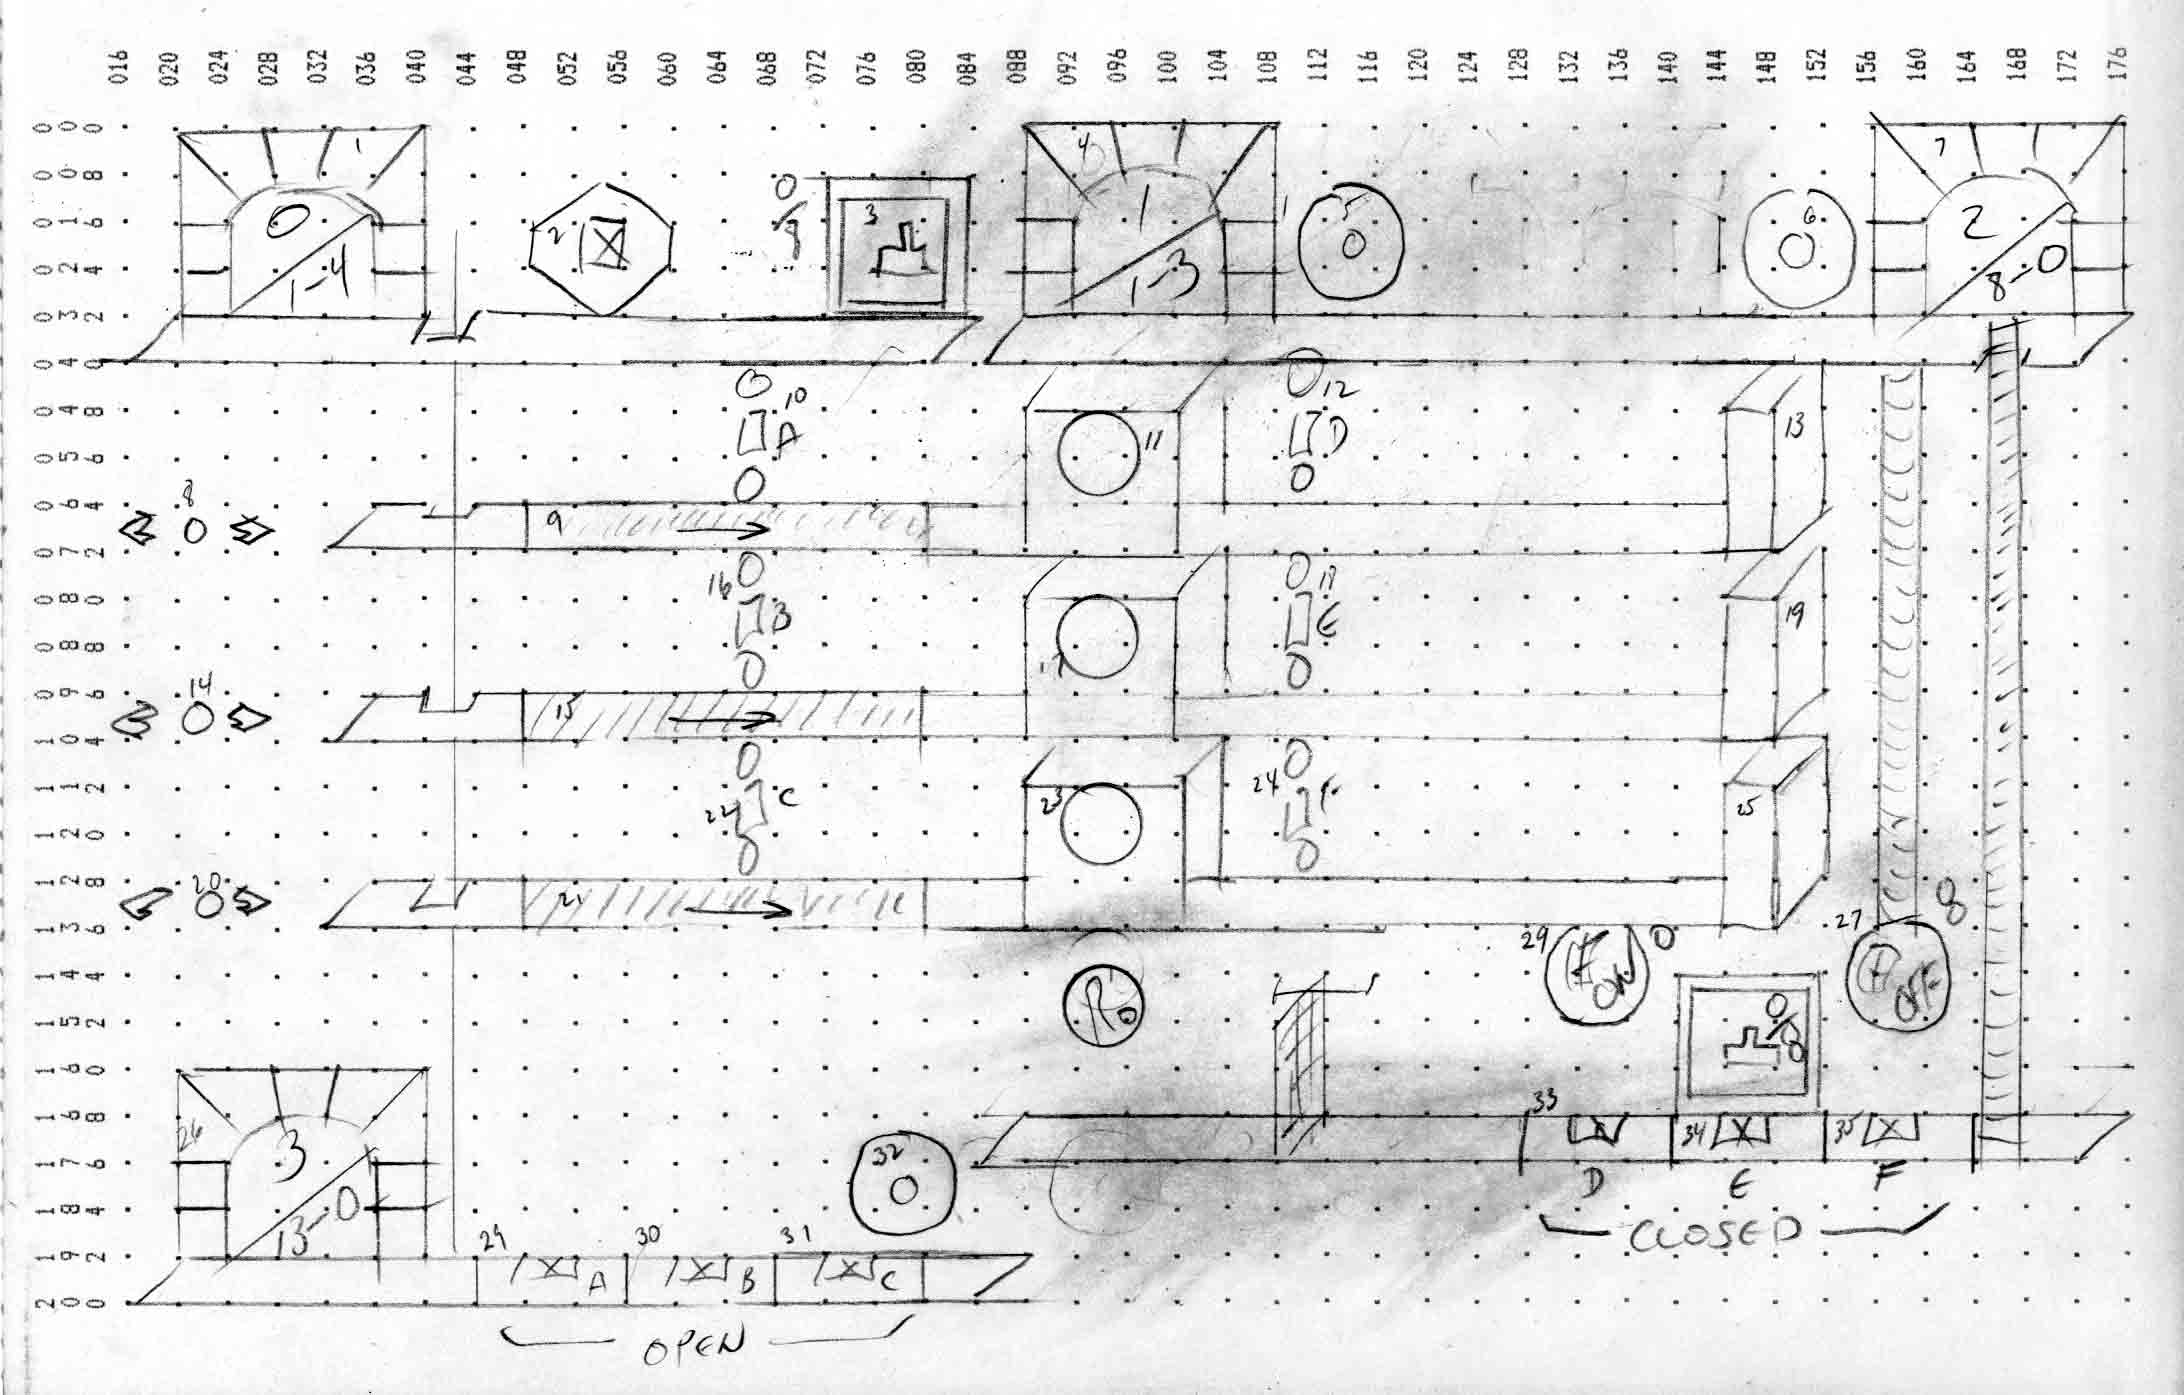 016 020 024 028 032 036 040 044 048 052 056 060 064 068 072 076 080 084 088 092 096 100 104 108 112 116 120 124 128 132 136 140 144 148 152 156 160 164 168 172 176
000
008
016
024
032
040
048
056
064
072
080
088
096
104
112
120
128
136
144
152
160
168
176
184
192
200
1 4 7
0 1 2
2 0 3 5 0 6 0
1-4 1-3 8-0
10 12
A 11 D 13
8
0 9
16 18
B 17 E 19
14
0 15
22 C 23 24 25
20
0 21
29 ON 0 27 OFF 8
26 3 33 34 35
13-0 32 0 D E F
CLOSED
29 30 31
A B C
OPEN